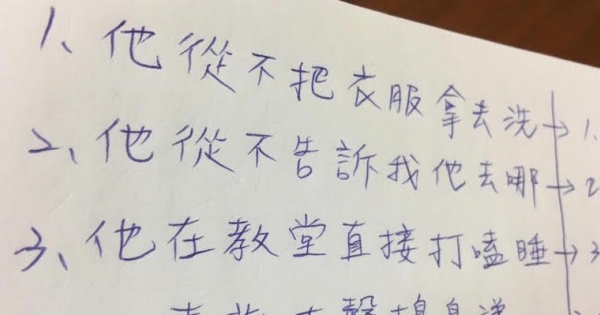 1、他從不把衣服拿去洗→1.
2、他從不告訴我他去哪→2
3、他在教堂直接打嗑睡→3